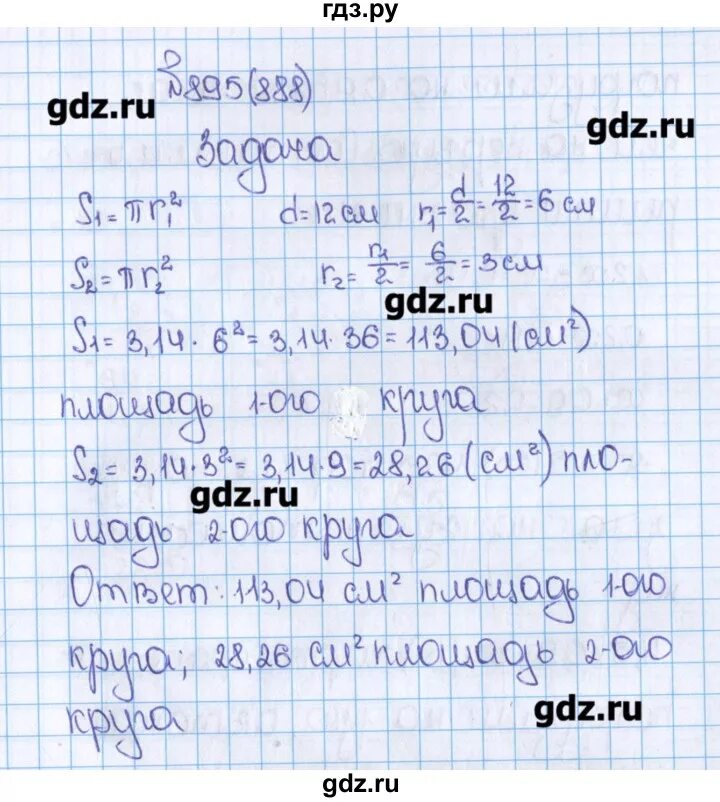 гдз.ру
№895(888)
gdz.ru
gdz.ru
Задача
S₁ = πr₁² d = 12 см r₁ = d/2 = 12/2 = 6 см
S₂ = πr₂² r₂ = r₁/2 = 6/2 = 3 см
gdz.ru
S₁ = 3,14 · 6² = 3,14 · 36 = 113,04 (см²)
площадь 1-ого круга
S₂ = 3,14 · 3² = 3,14 · 9 = 28,26 (см²) пло-
gdz.ru
щадь 2-ого круга
Ответ: 113,04 см² площадь 1-ого
круга; 28,26 см² площадь 2-ого
круга
gdz.ru
gdz.ru